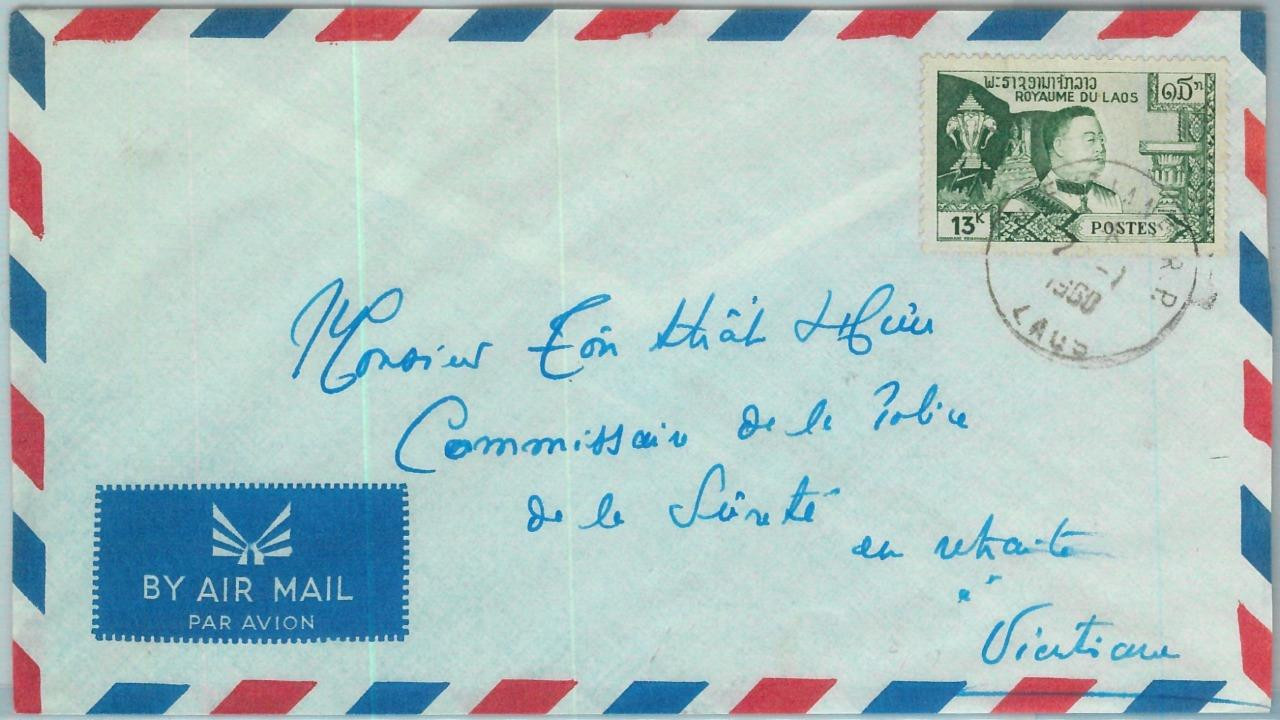 ພະຣາຊອານາຈັກລາວ
ROYAUME DU LAOS
໑໓ກ
13K
POSTES
R.P.
7-7
1960
LAOS
Monsieur Tôn thất Hữu
Commissaire de la Police
de la Sûreté
en retraite
à
Vientiane
BY AIR MAIL
PAR AVION